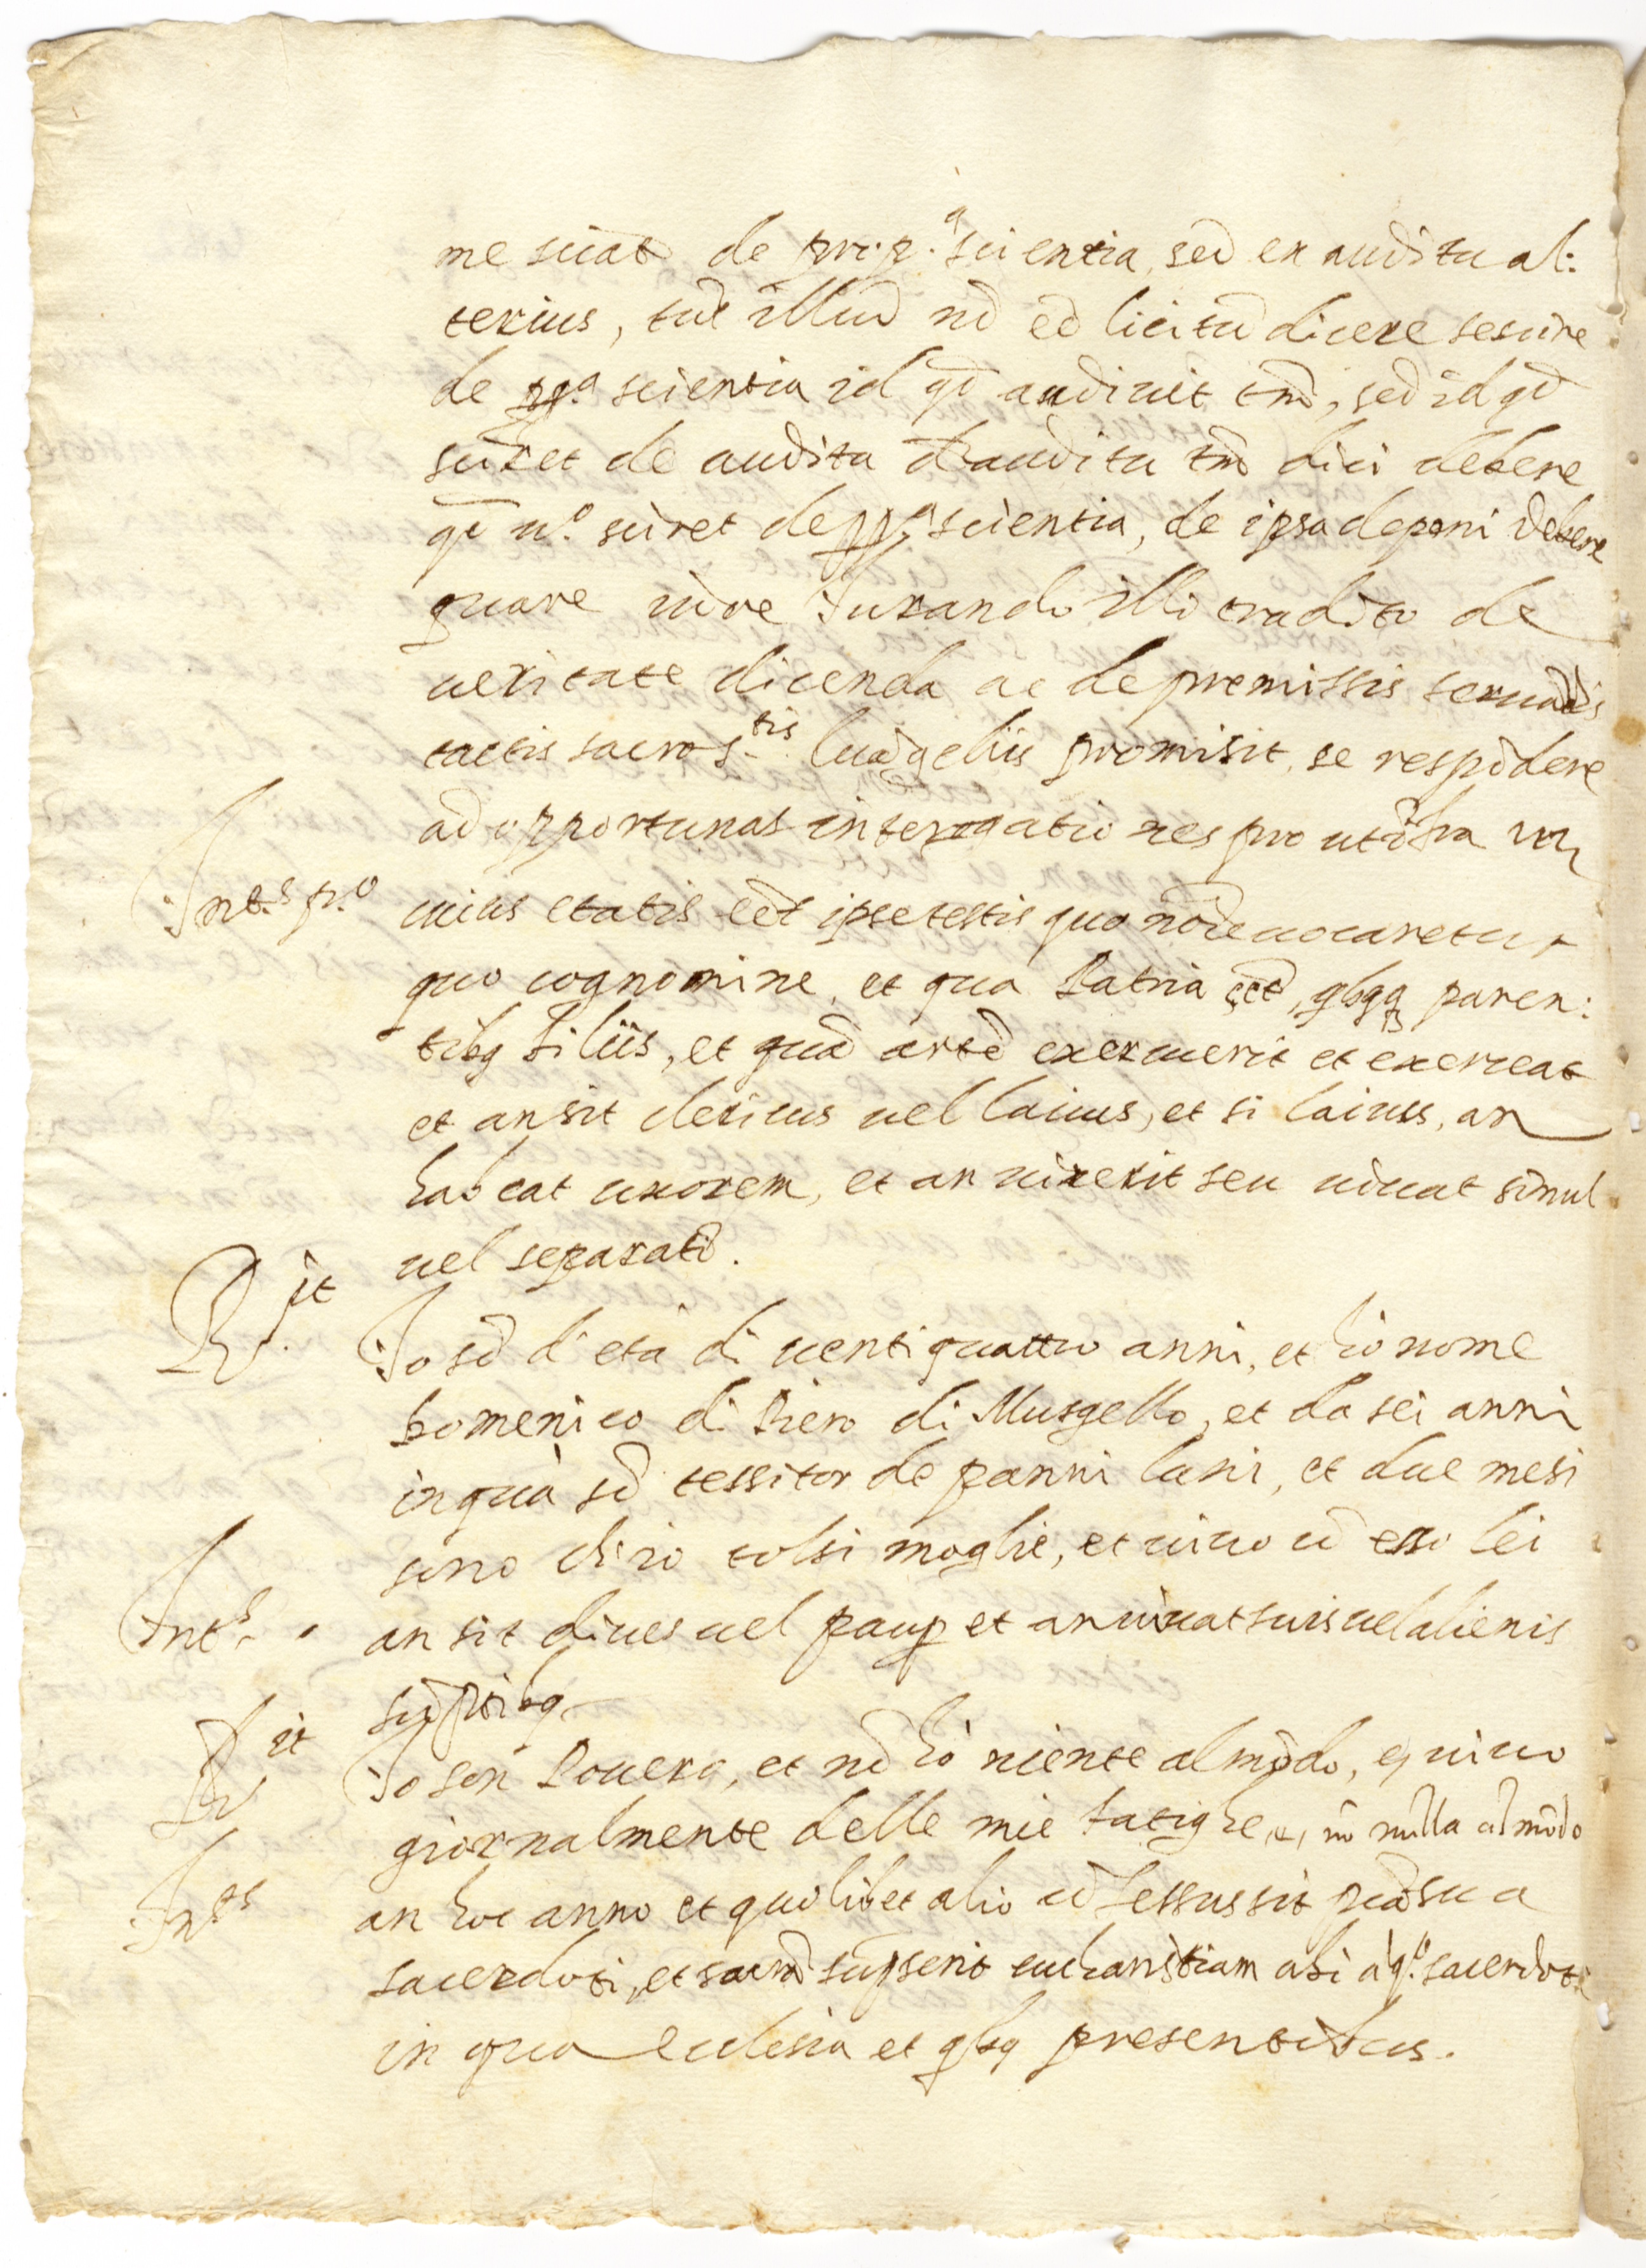 me sciat de prop.ª scientia, sed ex auditu al:
terius, tūc illud nō eē licitū dicere se scire
de pp.ª scientia id qđ audivit tm̄, sed id qđ
sciret de auditu de auditu tm̄ dici debere
qđ u.º sciret de pp.ª scientia, de ipsa deponi debere
quare iure Jurando illi tradito de
ueritate dicenda ac de premissis seruādis
tactis sacros.tis Euāgeliis promisit, se respōdere
ad opportunas interrogationes pro ut īfra uz
Int.s p.º cuius etatis eēt ipse testis quo nōīe uocaretur
quo cognomine, et qua Patria eēt, qbq paren:
tibq filiis, et quā artē exercuerit et exerceat
et an sit clericus uel laicus, et si laicus, an
habeat uxorem, et an uixerit seu uiuat simul
uel separatī.
R.it Io sō d'età di uentiquattro anni, et hò nome
Domenico di Piero di Musgello, et da sei anni
in quà sō tessitor de panni lani, et due mesi
sono ch'io tolsi moglie, et uiuo cō esso lei
Int.s an sit diues uel paup et an uiuat suis uel alienis
sūptibq
R.it Io son Pouero, et nō hò niente al mōdo, e, uiuo
giornalmente delle mie fatighe, et, nō nulla al mōdo
Int.s an hoc anno et quolibet alio cōfessus sit pctā sua
sacerdoti, et sacrā sūpserit eucharistiam ubi à q.º sacerdote
in qua ecclesia et qbq presentibus.